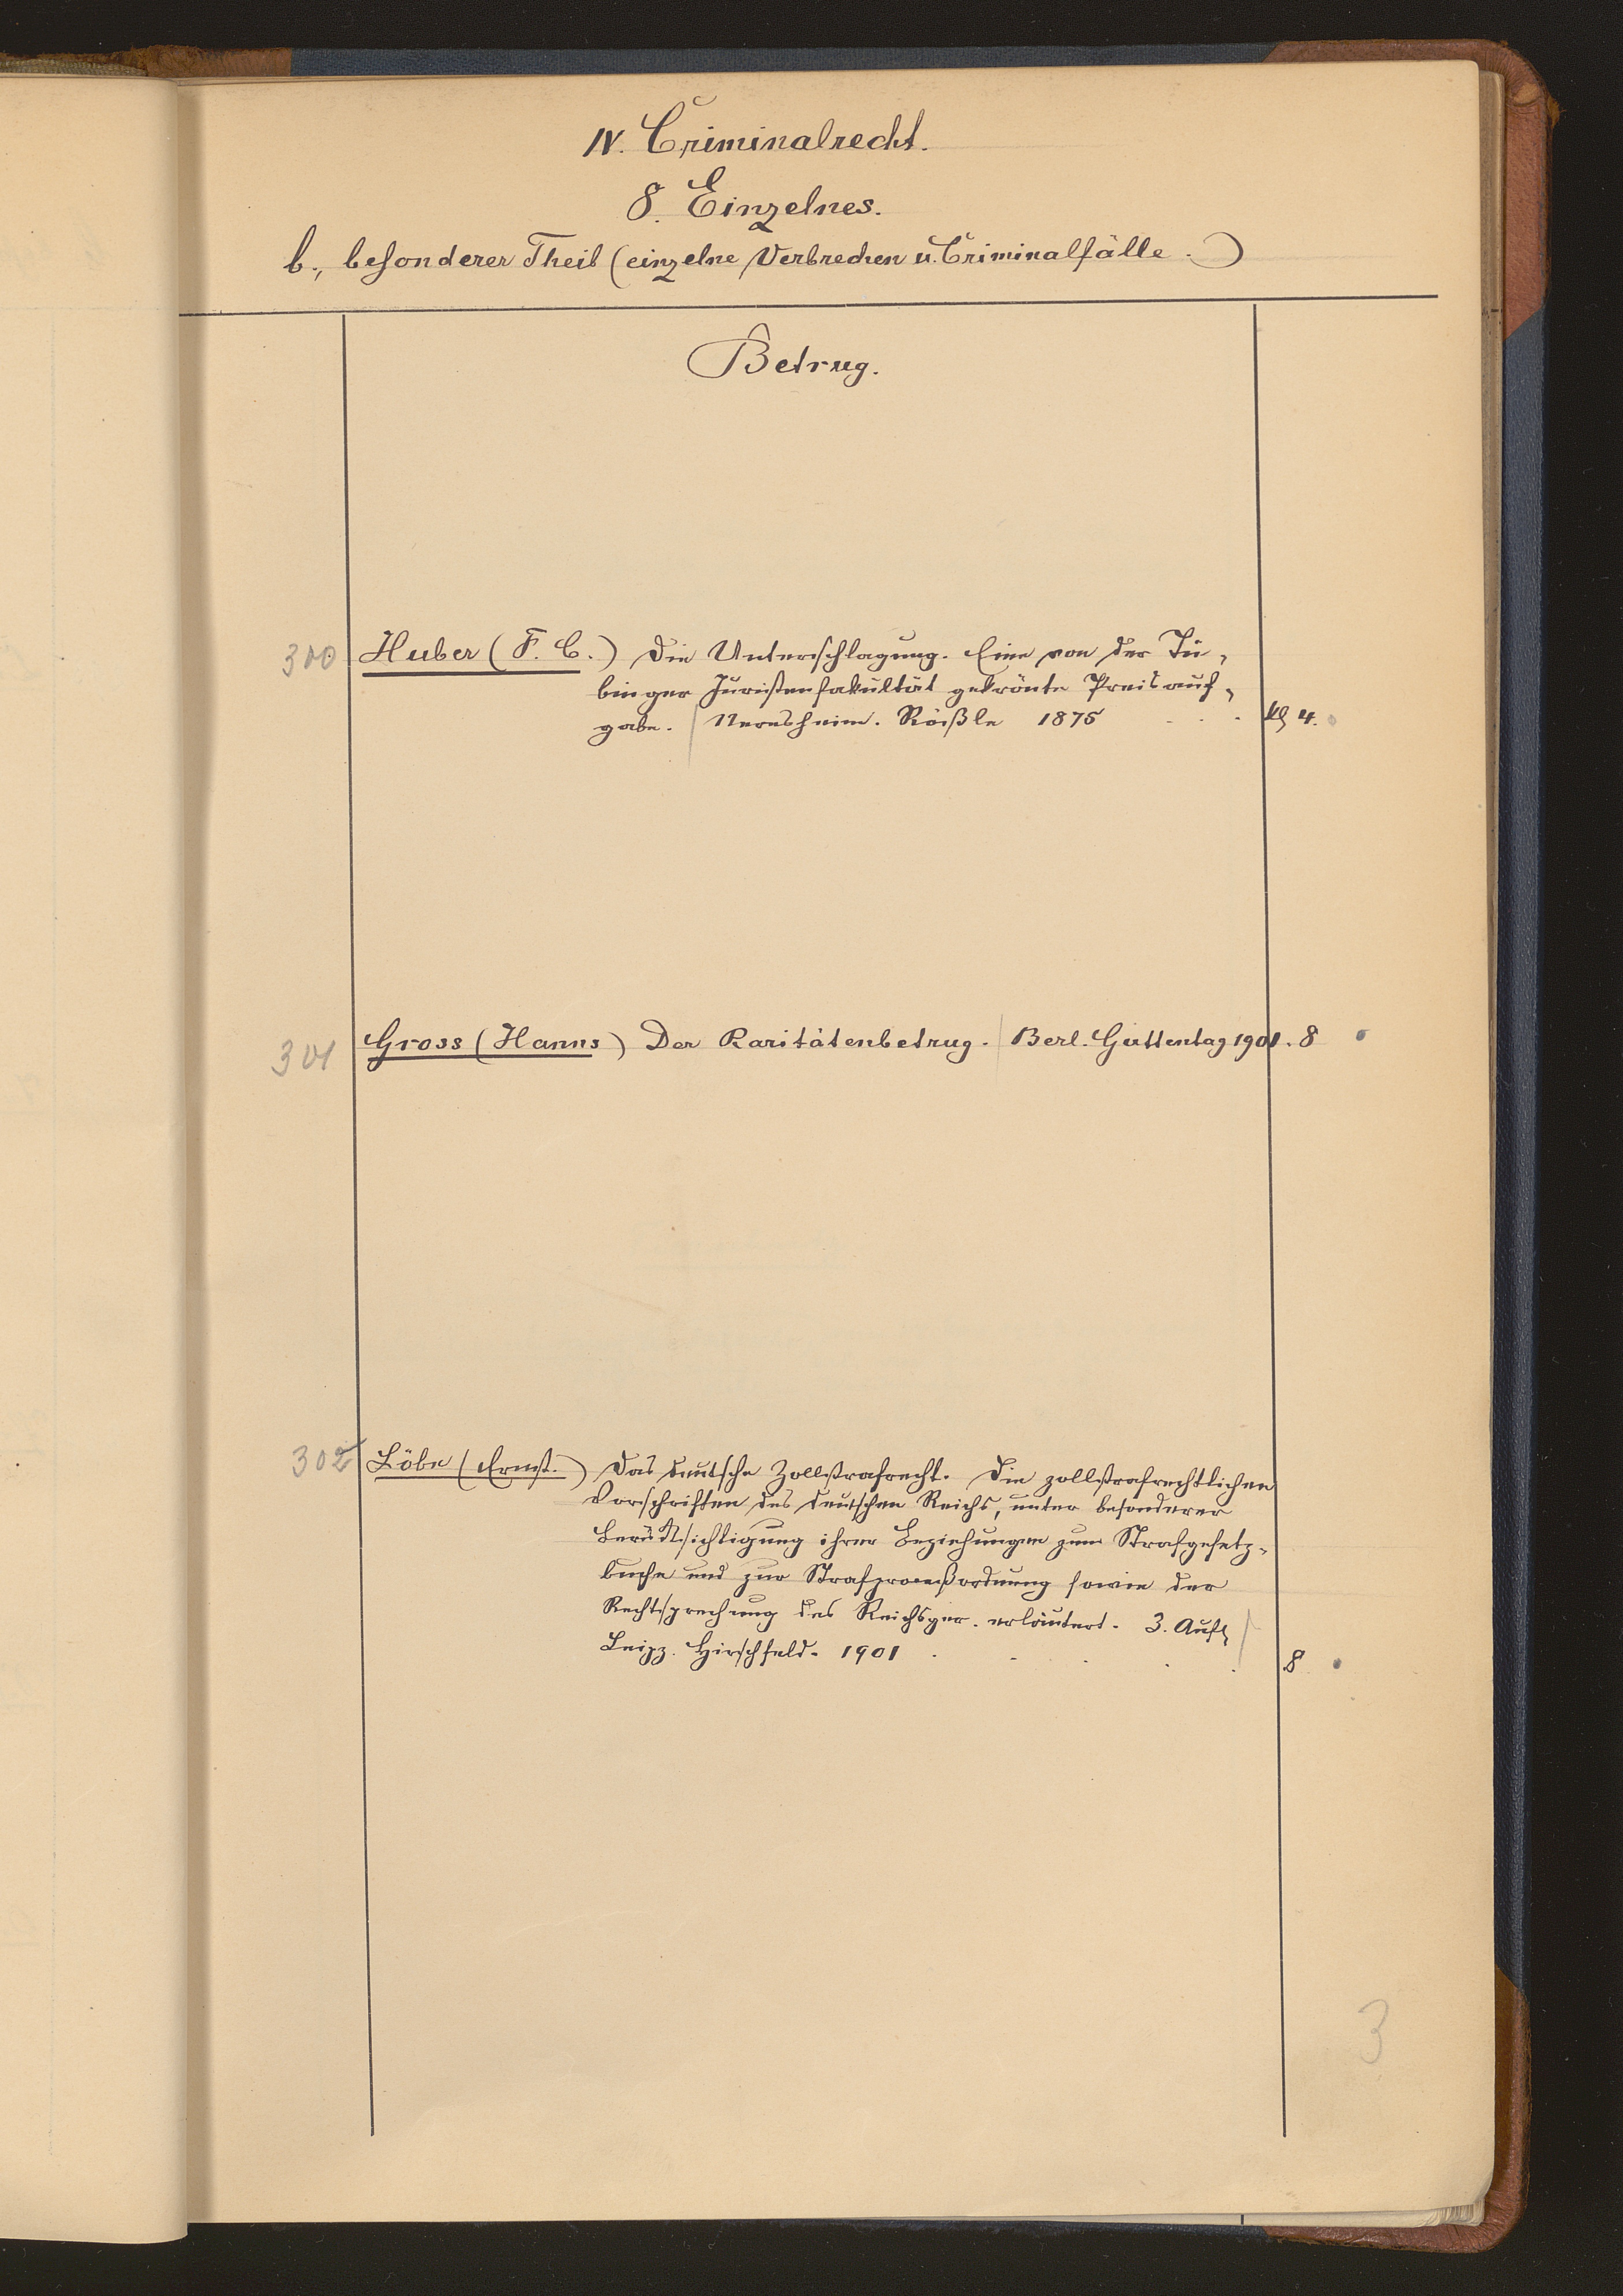 IV. Criminalrecht.
8. Einzelnes.
b., besonderer Theil (einzelne Verbrechen u. Criminalfälle.)
Betrug.
300 Huber (F. C.) Die Unterschlagung. Eine von der Tü-
binger Juristenfakultät gekrönte Preisauf-
gabe. Neresheim. Rößle 1875 . . . kl 4.
301 Gross (Hanns) Der Raritätenbetrug. Berl. Guttentag 1901. 8
302 Löbe (Ernst.) Das deutsche Zollstrafrecht. Die zollstrafrechtlichen
Vorschriften des deutschen Reichs, unter besonderer
Berücksichtigung ihrer Beziehungen zum Strafgesetz-
buche und zur Strafproceßordnung sowie der
Rechtsprechung des Reichsger. erläutert. 3. Aufl
Leipz. Hirschfeld. 1901 . . . . . 8
3